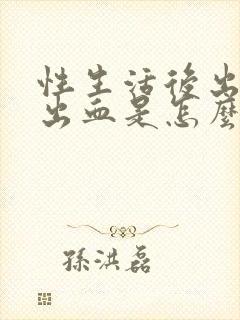 性生活後出
出血是怎麼
孫洪磊